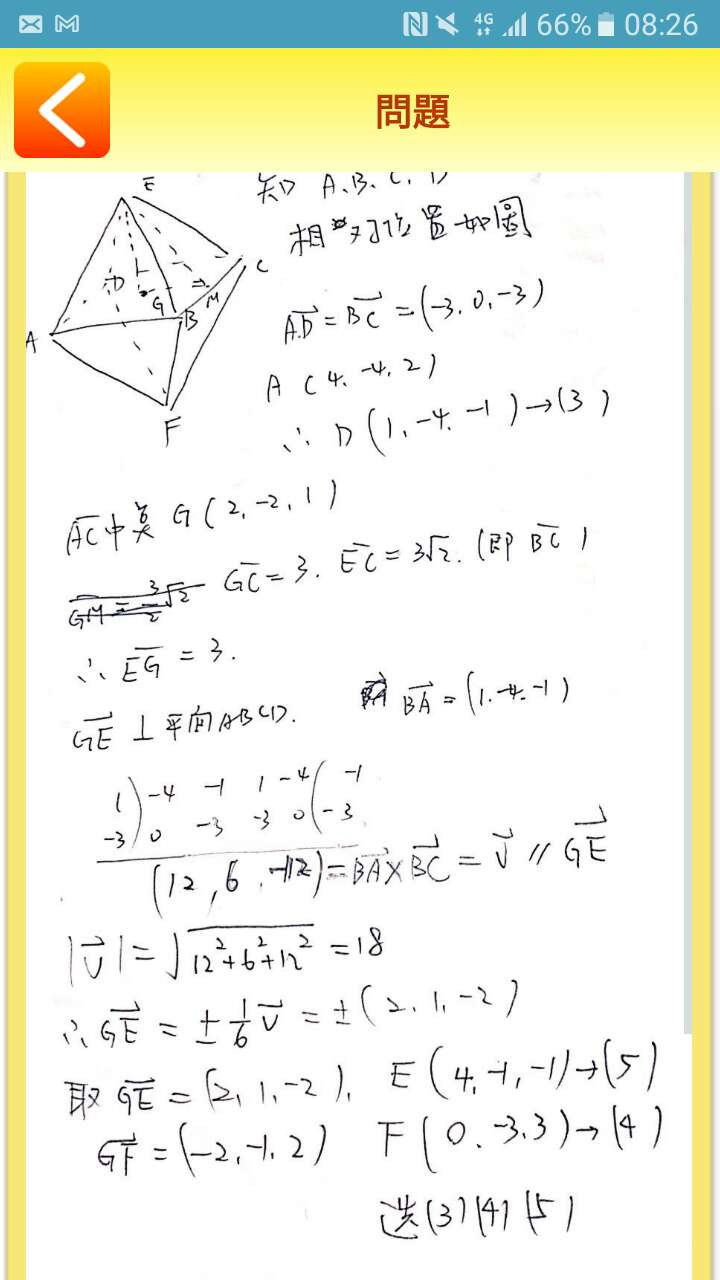 4G 66% 08:26
問題
E
知 A.B.C.D
相對位置如圖
C
D
G
M
B
A
F
AD = BC = (-3, 0, -3)
A (4, -4, 2)
∴ D (1, -4, -1) → (3)
AC中點 G (2, -2, 1)
GM = 3/2 √2
GC = 3. EC = 3√2. (即 BC)
∴ EG = 3.
GE ⊥ 平面ABCD.
BA = (1, -4, -1)
1 ) -4 -1 1 -4 ( -1
-3 ) 0 -3 -3 0 ( -3
(12, 6, -12) = BA × BC = V // GE
|V| = √12²+6²+12² = 18
∴ GE = ± 1/6 V = ± (2, 1, -2)
取 GE = (2, 1, -2), E (4, -1, -1) → (5)
GF = (-2, -1, 2) F (0, -3, 3) → (4)
选 (3) (4) (5)